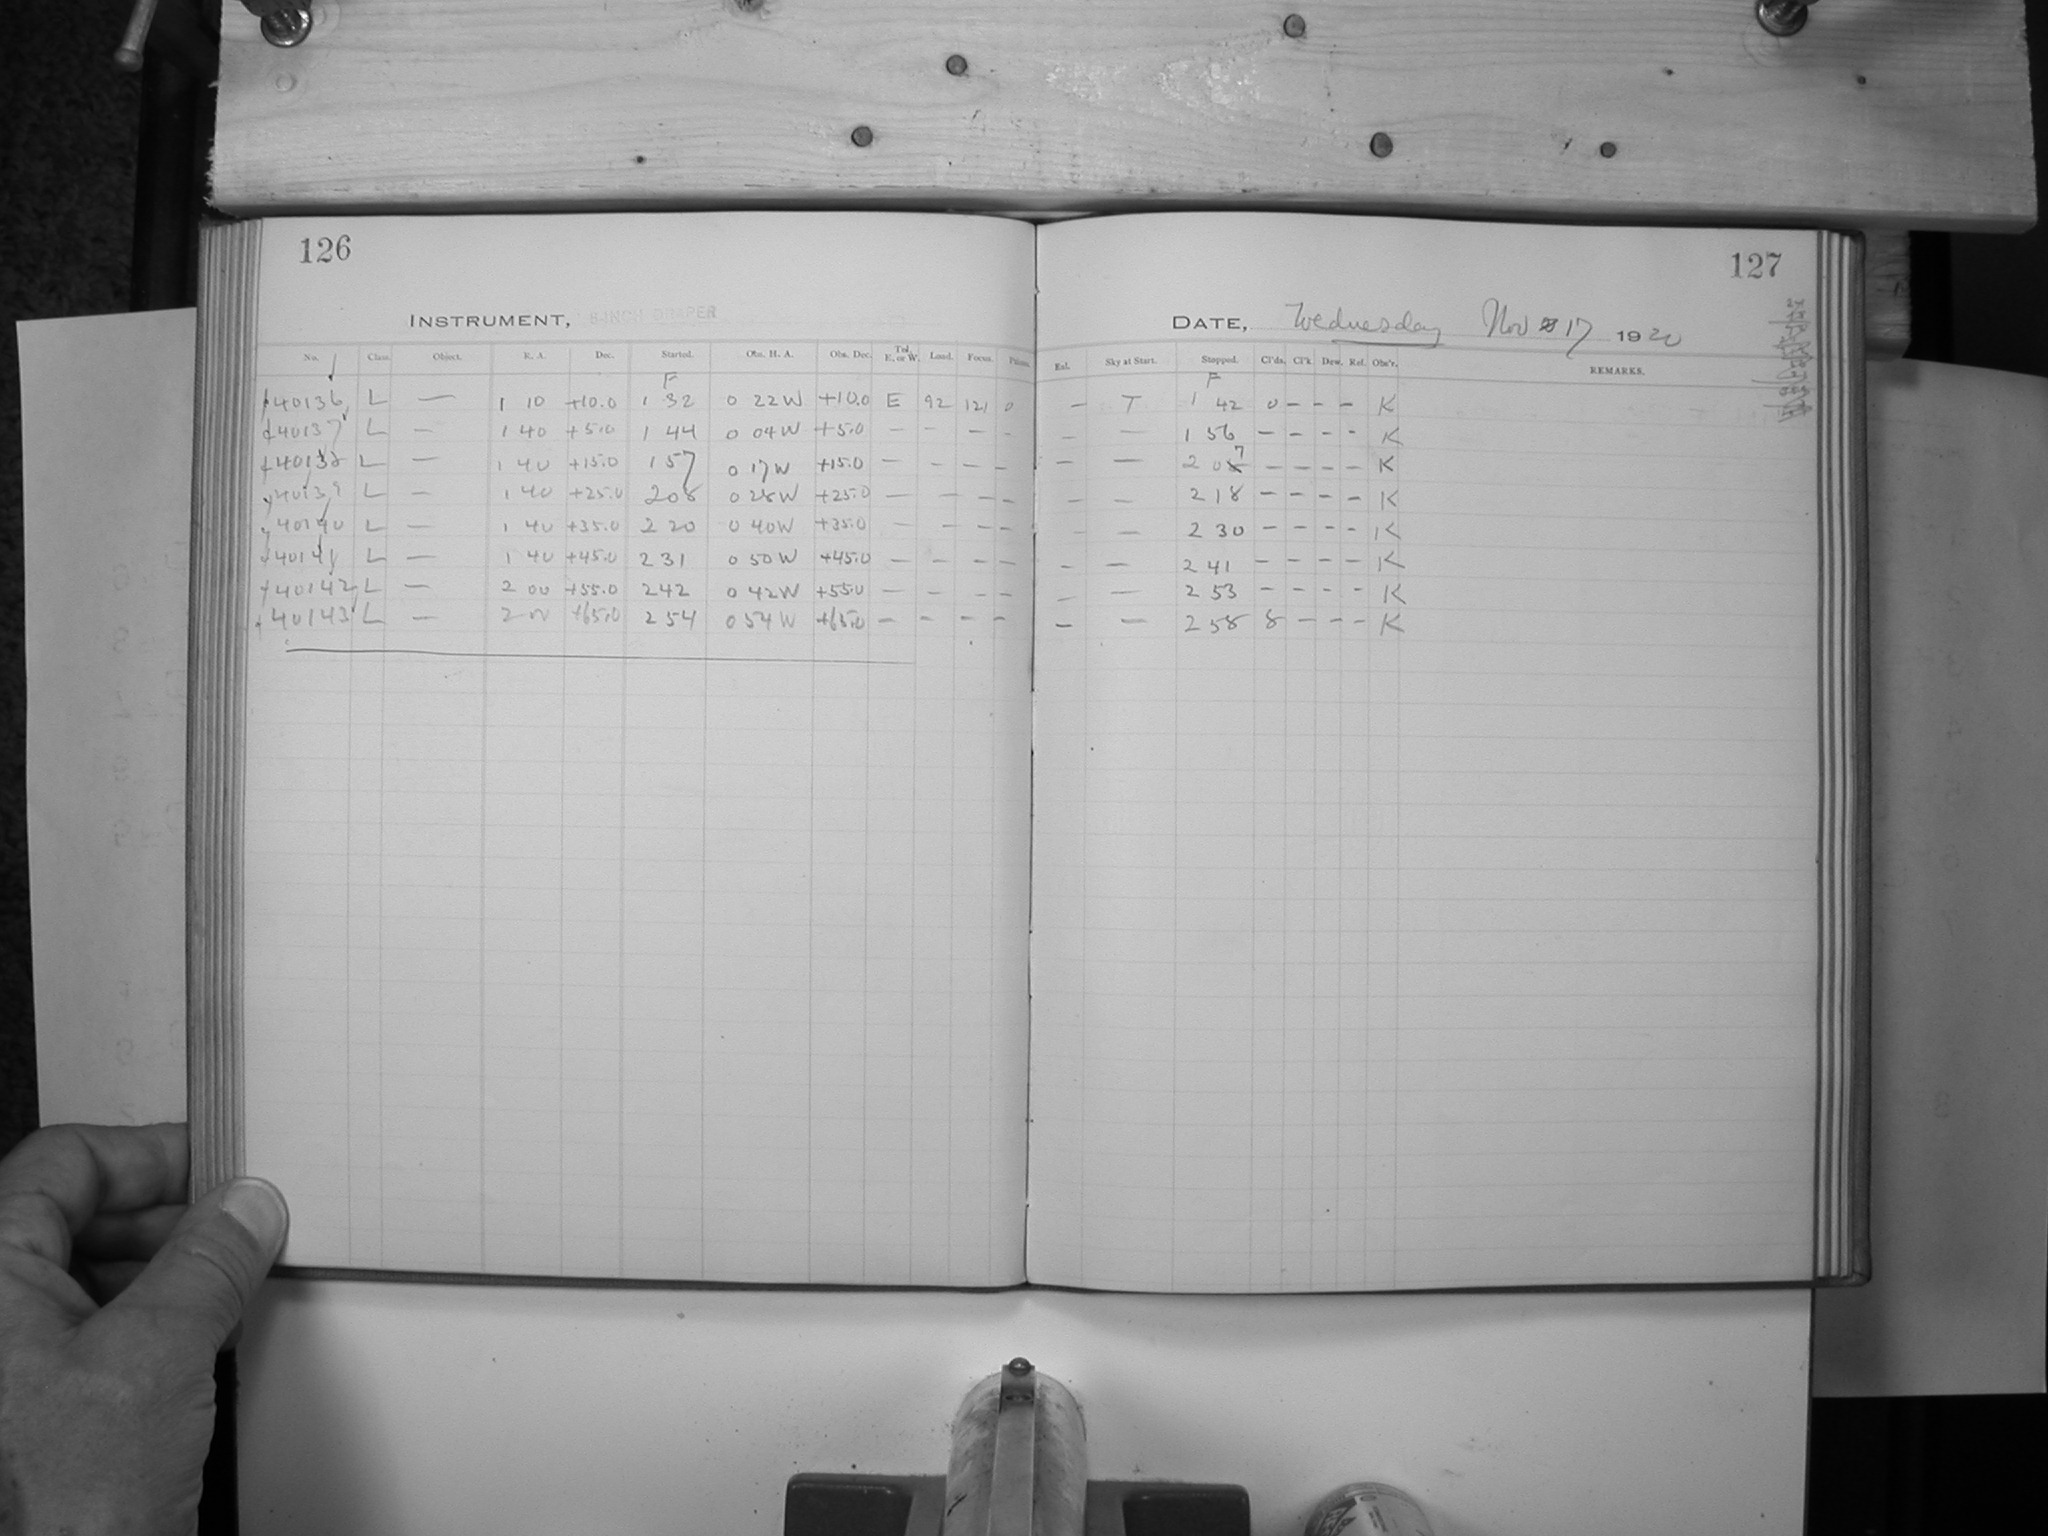 126
INSTRUMENT, 8-INCH DRAPER
No. Class. Object. R. A. Dec. Started. Obs. H. A. Obs. Dec. Tel. E. or W. Load. Focus.
F
40136 L — 1 10 +10.0 1 32 0 22W +10.0 E 92 121 0
40137 L — 1 40 +5.0 1 44 0 04W +5.0 — - — -
40138 L — 1 40 +15.0 1 57 0 17W +15.0 — - — -
40139 L — 1 40 +25.0 2 08 0 28W +25.0 — - - -
40140 L — 1 40 +35.0 2 20 0 40W +35.0 — - - -
40141 L — 1 40 +45.0 2 31 0 50W +45.0 — - - -
40142 L — 2 00 +55.0 2 42 0 42W +55.0 — - - -
40143 L — 2 00 +65.0 2 54 0 54W +65.0 — - - -
127
DATE, Wednesday Nov 17 1920
Exl. Sky at Start. Stopped. Cl'ds. Cl'k Dew. Rel. Obs'r. REMARKS.
F
— T 1 42 0 - - - K
- — 1 56 - - - - K
- — 2 07 - - - - K
- — 2 18 - - - - K
- — 2 30 - - - - K
- — 2 41 - - - - K
- — 2 53 - - - - K
- — 2 58 8 - - - K